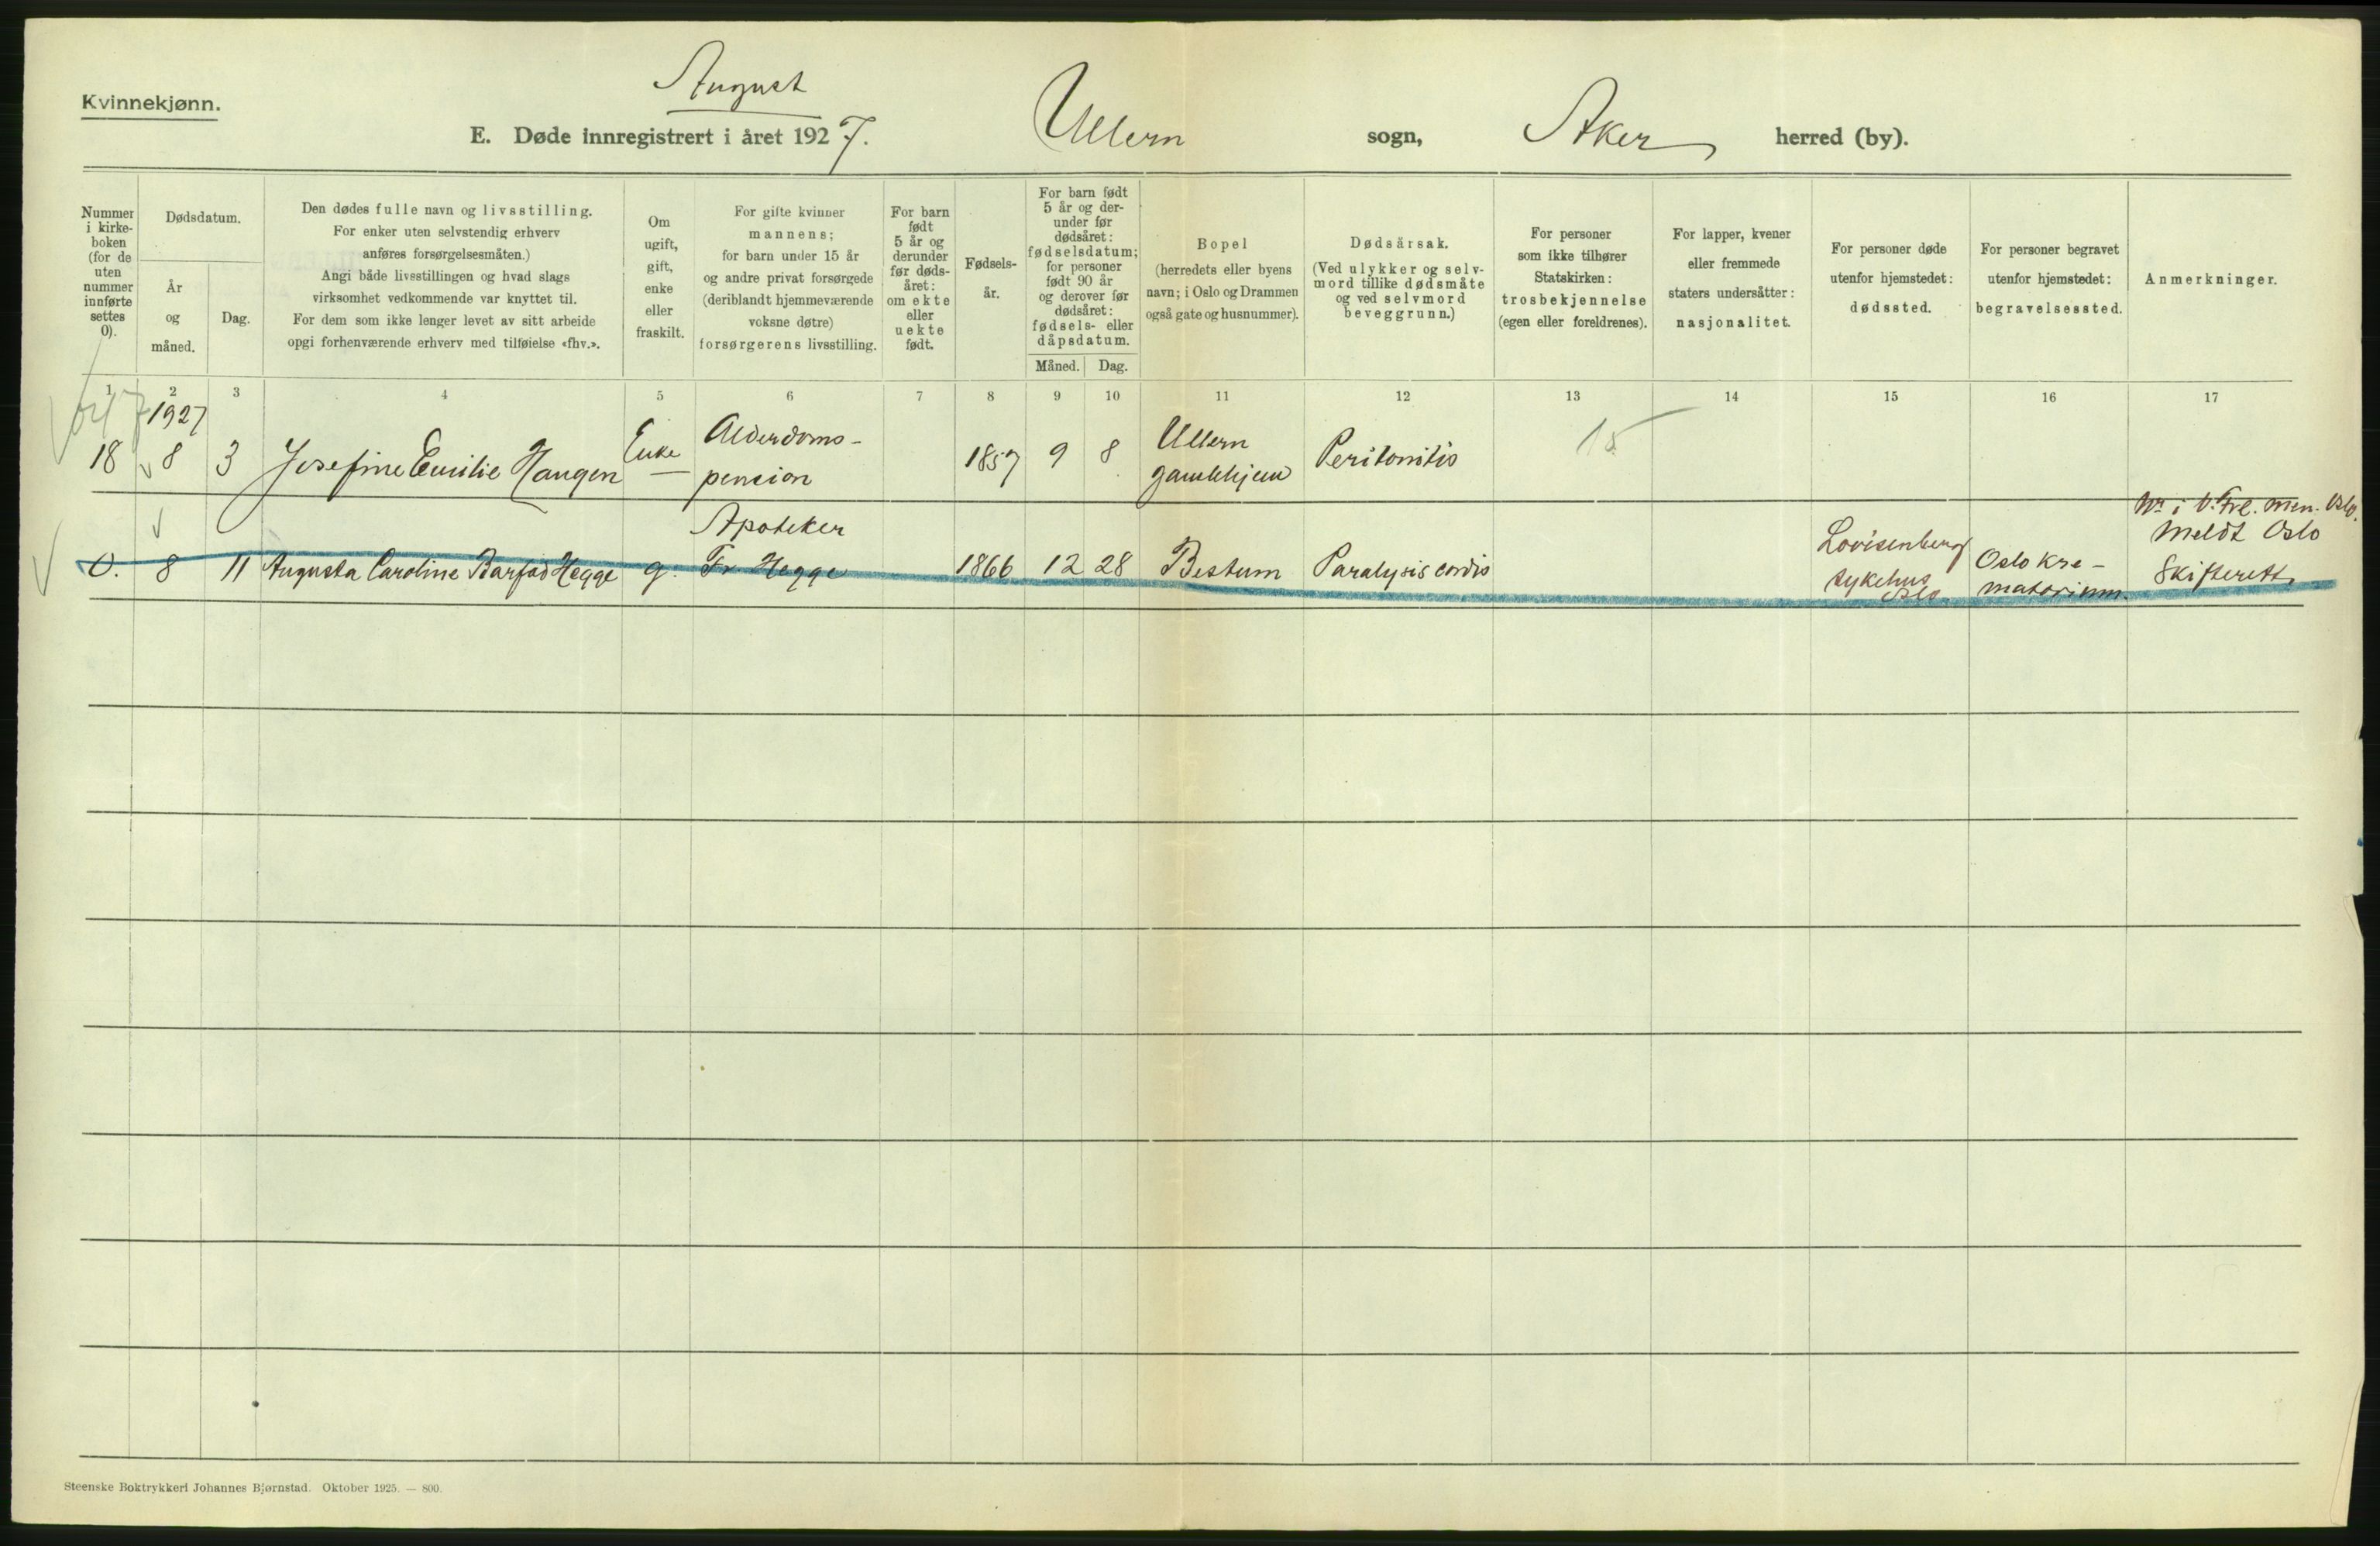 Kvinnekjønn.
August
E. Døde innregistrert i året 1927. Ullern sogn, Aker herred (by).
Nummer
i kirke-
boken
(for de
uten
nummer
innførte
settes
0).
Dødsdatum.
År
og
måned.
Dag.
Den dødes fulle navn og livsstilling.
For enker uten selvstendig erhverv
anføres forsørgelsesmåten.)
Angi både livsstillingen og hvad slags
virksomhet vedkommende var knyttet til.
For dem som ikke lenger levet av sitt arbeide
opgi forhenværende erhverv med tilføielse «fhv.».
Om
ugift,
gift,
enke
eller
fraskilt.
For gifte kvinner
mannens;
for barn under 15 år
og andre privat forsørgede
(deriblandt hjemmeværende
voksne døtre)
forsørgerens livsstilling.
For barn
født
5 år og
derunder
før døds-
året:
om ekte
eller
uekte
født.
Fødsels-
år.
For barn født
5 år og der-
under før
dødsåret:
fødselsdatum;
for personer
født 90 år
og derover før
dødsåret:
fødsels- eller
dåpsdatum.
Måned. Dag.
Bopel
(herredets eller byens
navn; i Oslo og Drammen
også gate og husnummer).
Dødsårsak.
(Ved ulykker og selv-
mord tillike dødsmåte
og ved selvmord
beveggrunn.)
For personer
som ikke tilhører
Statskirken:
trosbekjennelse
(egen eller foreldrenes).
For lapper, kvener
eller fremmede
staters undersåtter:
nasjonalitet.
For personer døde
utenfor hjemstedet:
dødssted.
For personer begravet
utenfor hjemstedet:
begravelsessted.
Anmerkninger.
1 2 3 4 5 6 7 8 9 10 11 12 13 14 15 16 17
1927
18 8 3 Josefine Emilie Haugen Enke Alderdoms-
pension
1857 9 8 Ullern
gamlehjem
Peritonitis 15
0. 8 11 Augusta Caroline Barfod Hegge g. Apoteker
Fr Hegge
1866 12 28 Bestum Paralysis cordis Lovisenberg
sykehus
Oslo
Oslo kre-
matorium.
Nr i V. Frl. Men. Oslo.
Meldt Oslo
Skifterett.
Steenske Boktrykkeri Johannes Bjørnstad. Oktober 1925. — 800.